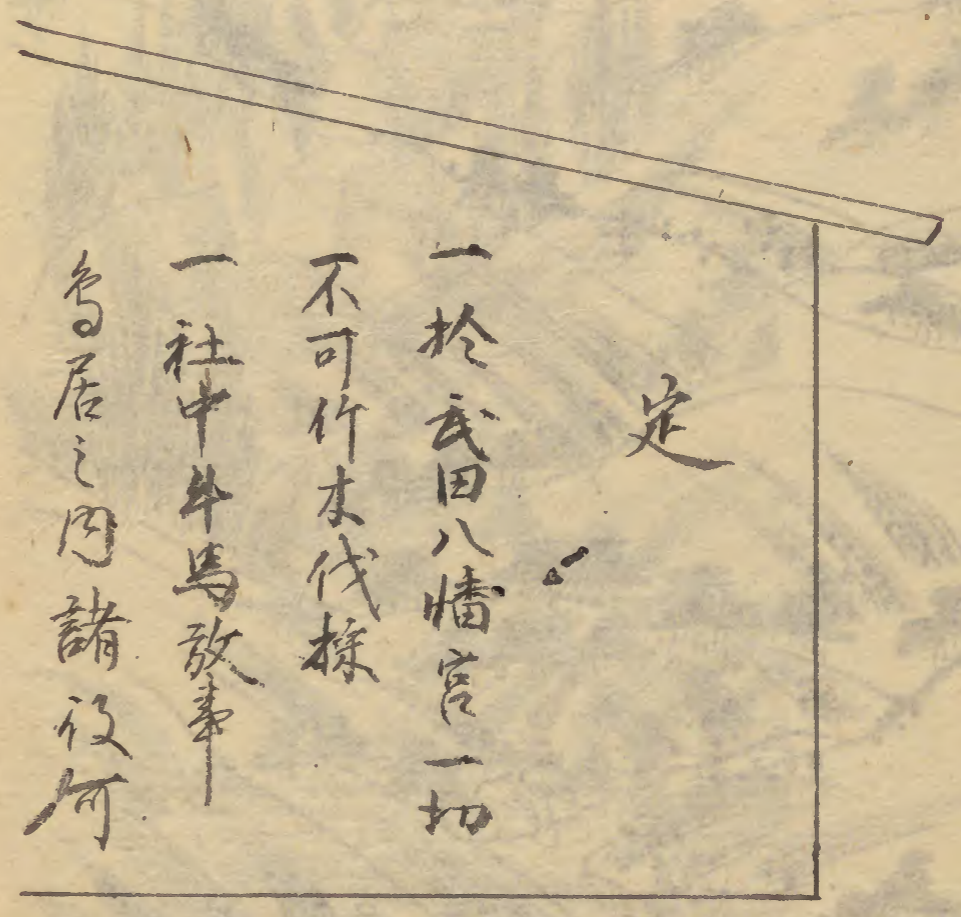 定
一於武田八幡宮一切
不可竹木伐採
一社中牛馬放事
鳥居之内諸役何